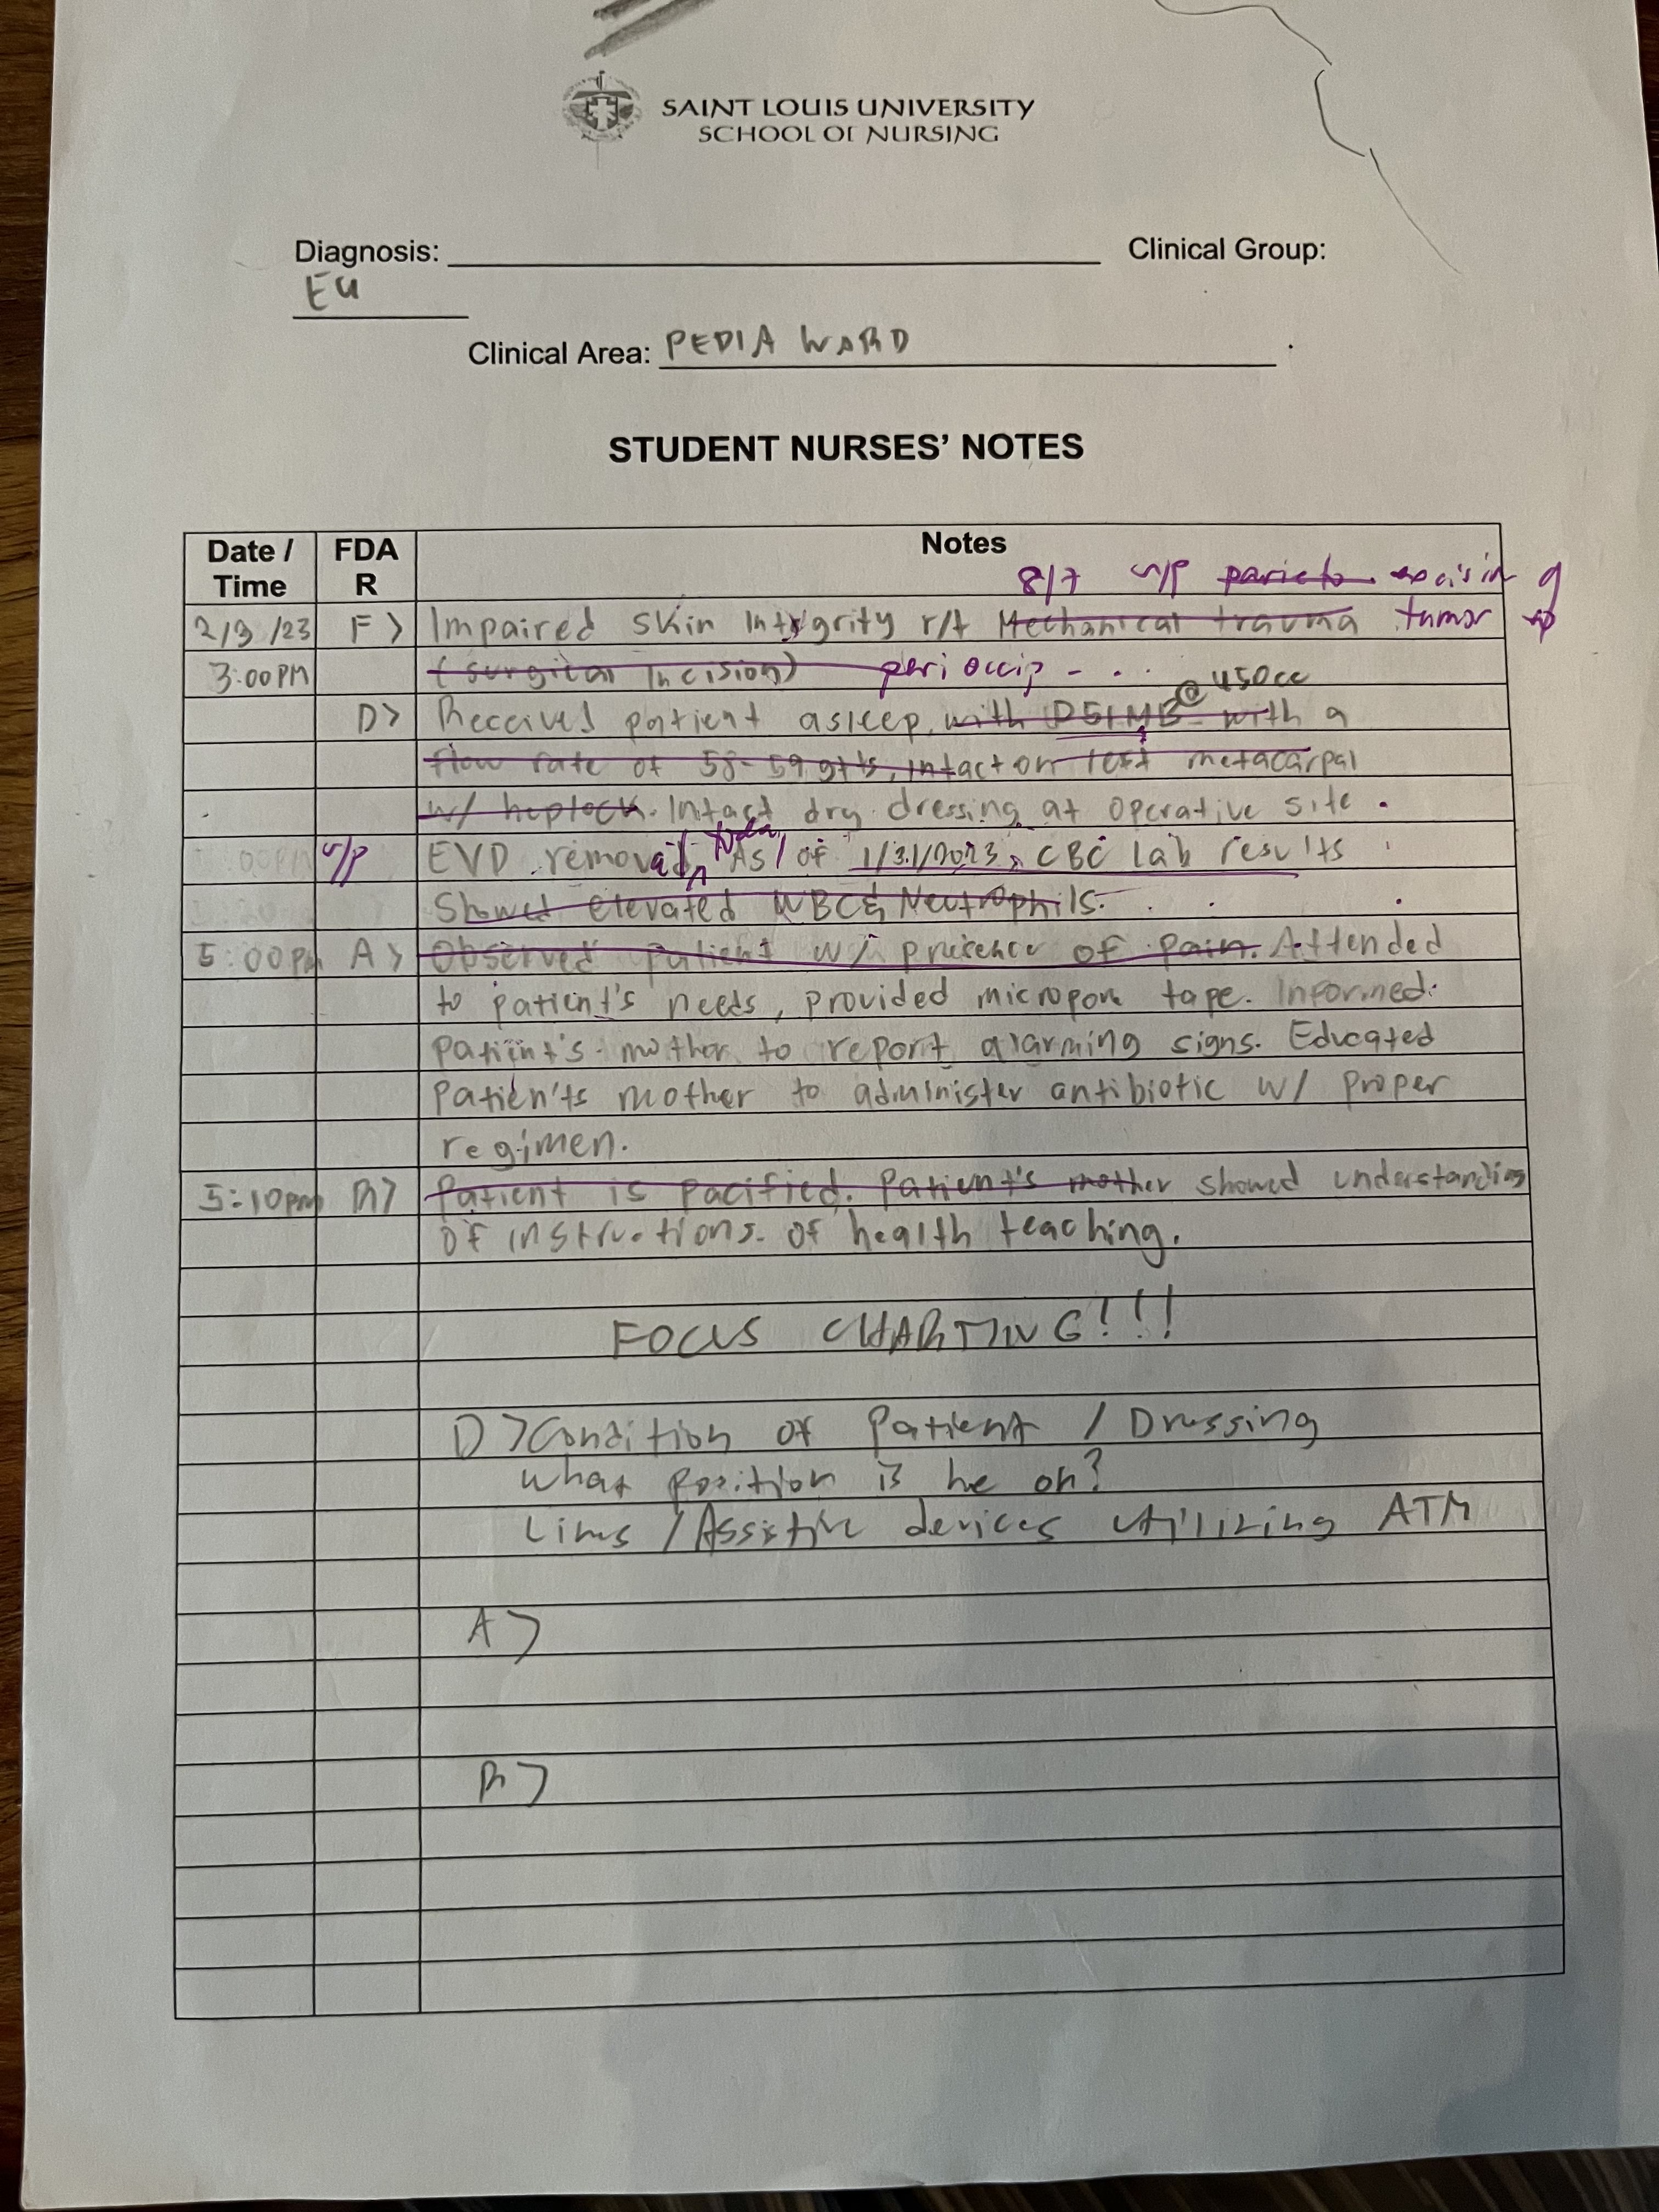 SAINT LOUIS UNIVERSITY
SCHOOL OF NURSING
Diagnosis: Clinical Group:
E4
Clinical Area: PEDIA WARD
STUDENT NURSES' NOTES
Date / Time FDAR Notes
s/p
2/3/23 F > Impaired skin Intigrity r/t Mechanical trauma tumor
3:00PM (surgical Incision) peri occip - . .
@ 450cc
D> Received patient asleep, with D51MB with a
flow rate of 58-59 gtts, intact on left metacarpal
w/ heplock. Intact dry dressing at operative site.
s/p EVD removal, As of 1/31/2023, CBC Lab results
Showed elevated WBC & Neutrophils.
5:00pm A > Observed patient w/ presence of pain. Attended
to patient's needs, provided micropore tape. Informed
patient's mother to report alarming signs. Educated
Patien'ts mother to administer antibiotic w/ proper
regimen.
5:10pm R> Patient is pacified. Patient's mother showed understanding
of instructions of health teaching.
FOCUS CHARTING!!!
D >Condition of Patient / Dressing
what position is he on?
Lines /Assistive devices utilizing ATM
A >
R >